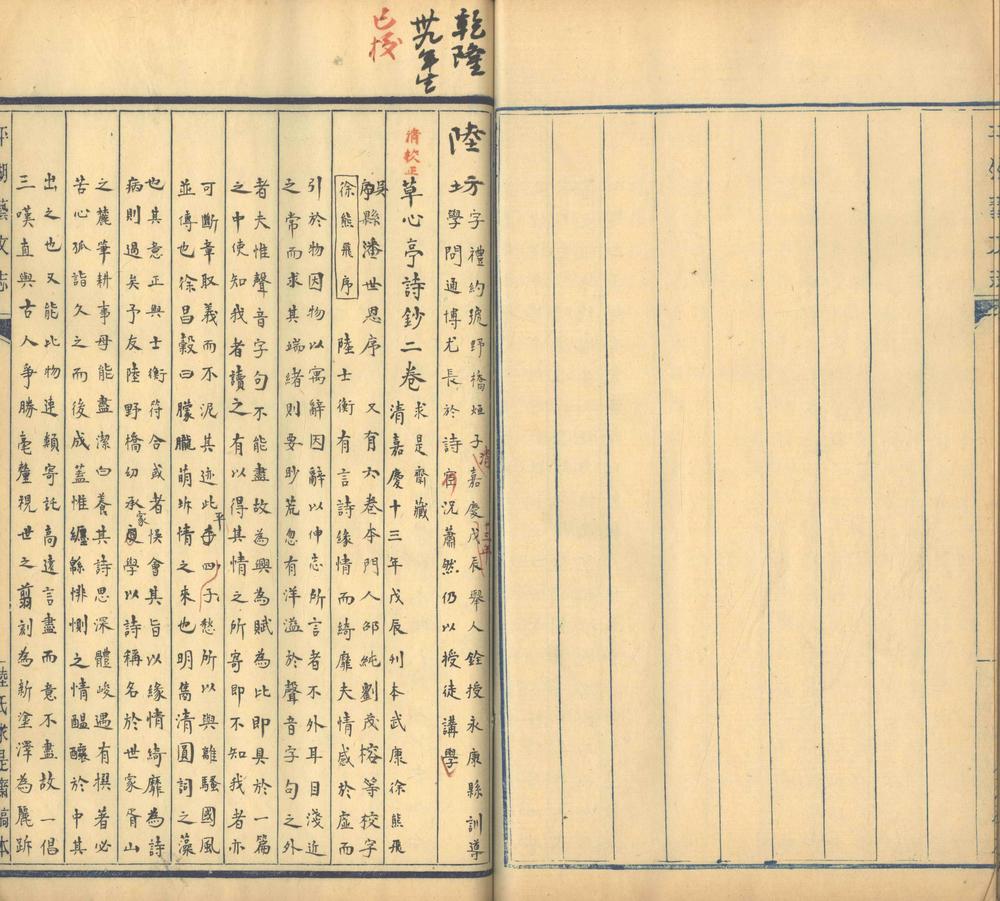 乾隆
卅九年生
已校
陸坊字禮約號野橋烜子清嘉慶戊辰十三年舉人銓授永康縣訓導
學問通博尤長於詩宦況蕭然仍以授徒講學
草心亭詩鈔二卷 求是齋藏
清嘉慶十三年戊辰刊本武康徐熊飛
序吳縣潘世恩序 又有六卷本門人邵純劉茂榕等校字
徐熊飛序 陸士衡有言詩緣情而綺靡夫情感於虛而
引於物因物以寓辭因辭以伸志所言者不外耳目淺近
之常而求其端緒則要眇荒忽有洋溢於聲音字句之外
者夫惟聲音字句不能盡故為興為賦為比即具於一篇
之中使知我者讀之有以得其情之所寄即不知我者亦
可斷章取義而不泥其迹此平子四愁所以與離騷國風
並傳也徐昌穀曰朦朧萌坼情之來也明雋清圓詞之藻
也其意正與士衡符合或者悞會其旨以緣情綺靡為詩
病則過矣予友陸野橋幼承家學以詩稱名於世家胥山
之麓筆耕事母能盡潔白養其詩思深體峻遇有撰著必
苦心孤詣久之而後成蓋惟纏緜悱惻之情醞釀於中其
出之也又能比物連類寄託高遠言盡而意不盡故一倡
三嘆直與古人爭勝毫釐視世之翦刻為新塗澤為麗跅
平湖藝文志
陸氏求是齋稿本